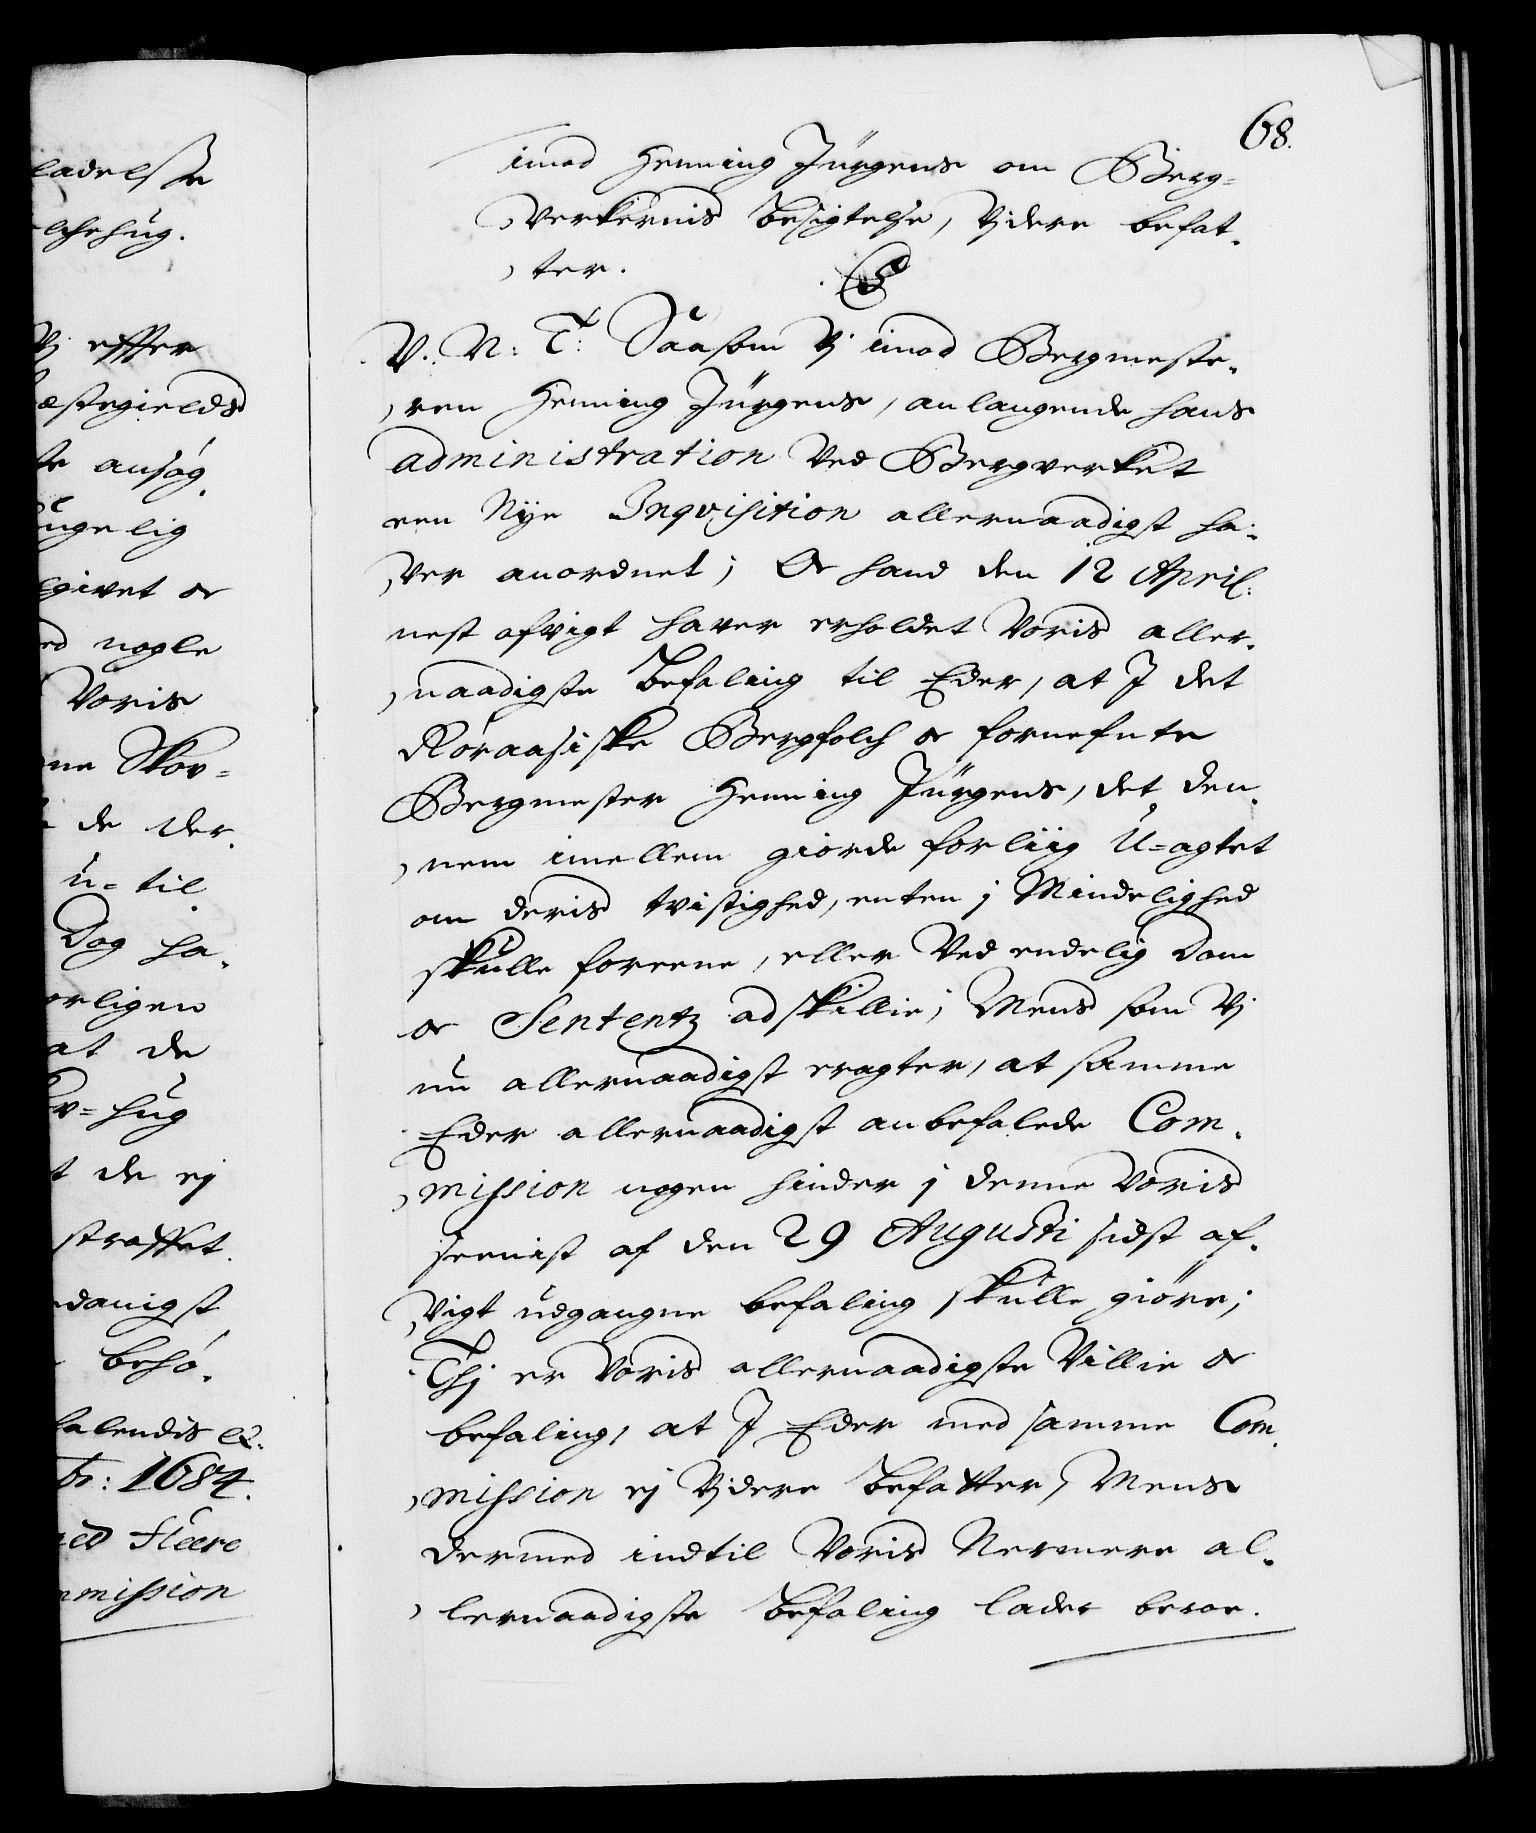 ladelse
elsehug.
Vj effter
estegields
te ansøg¸
ngelig
lgivet oc
ed nogle
Voris
ne Skov=
de der¸
u=til¸
Dog ha¸
orligen
at de
ov=hug
t de ej
straffet.
danigst
behø¸
alendis &c:
br: 1684.
ed Fleere
mmission
68.
imod Henning Jürgens om Berg=
verkernis Besigtelse, Vjdere befat¸
ter.
V. N: T: Saasom Vj imod Bergmeste¸
ren Henning Jürgens, anlangende hans
administration Ved Bergverket
een Nye Inqvisition allernaadigst ha¸
ver anordnet; Oc hand den 12 April:
nest afvigt haver erholdet Voris aller¸
naadigste Befaling til Eder, at J det
Røraasiske Bergfolch oc fornefnte
Bergmester Henning Jürgens, det den¸
nem imellem giorde forliig U=agtet
om deris tvistighed, enten j Mindelighed
skulle foreene, eller Ved endelig Dom
oc Sententz adskillie; Mens som Vj
nu allernaadigst eragter, at samme
Eder allernaadigst anbefalede Com¸
mission nogen hinder j denne Voris
seenist af den 29 Augusti sidst af¸
vigt udgangne befaling skulle giøre;
Thj er Voris allernaadigste Villie oc
befaling, at J Eder med samme Com¸
mission ej Vjdere Befatter, Mens
dermed indtil Voris Nermere al¸
lernaadigste Befaling lader beroe.